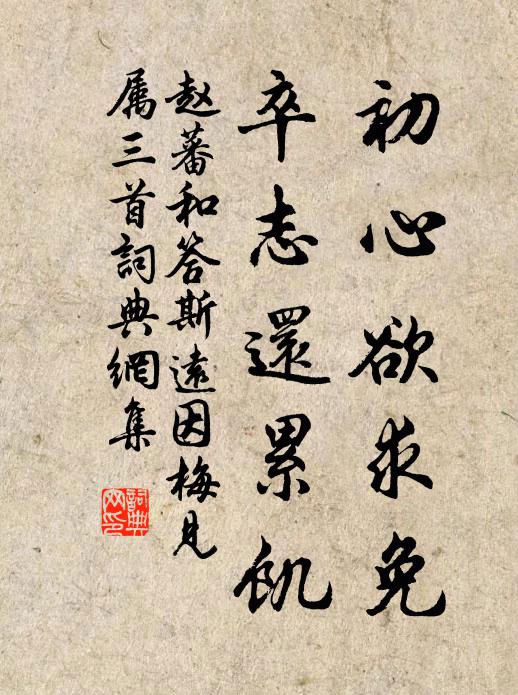 初心欲求免
卒志還累飢
赵蕃和答斯遠因梅見
屬三首詞典網集
詞典网印